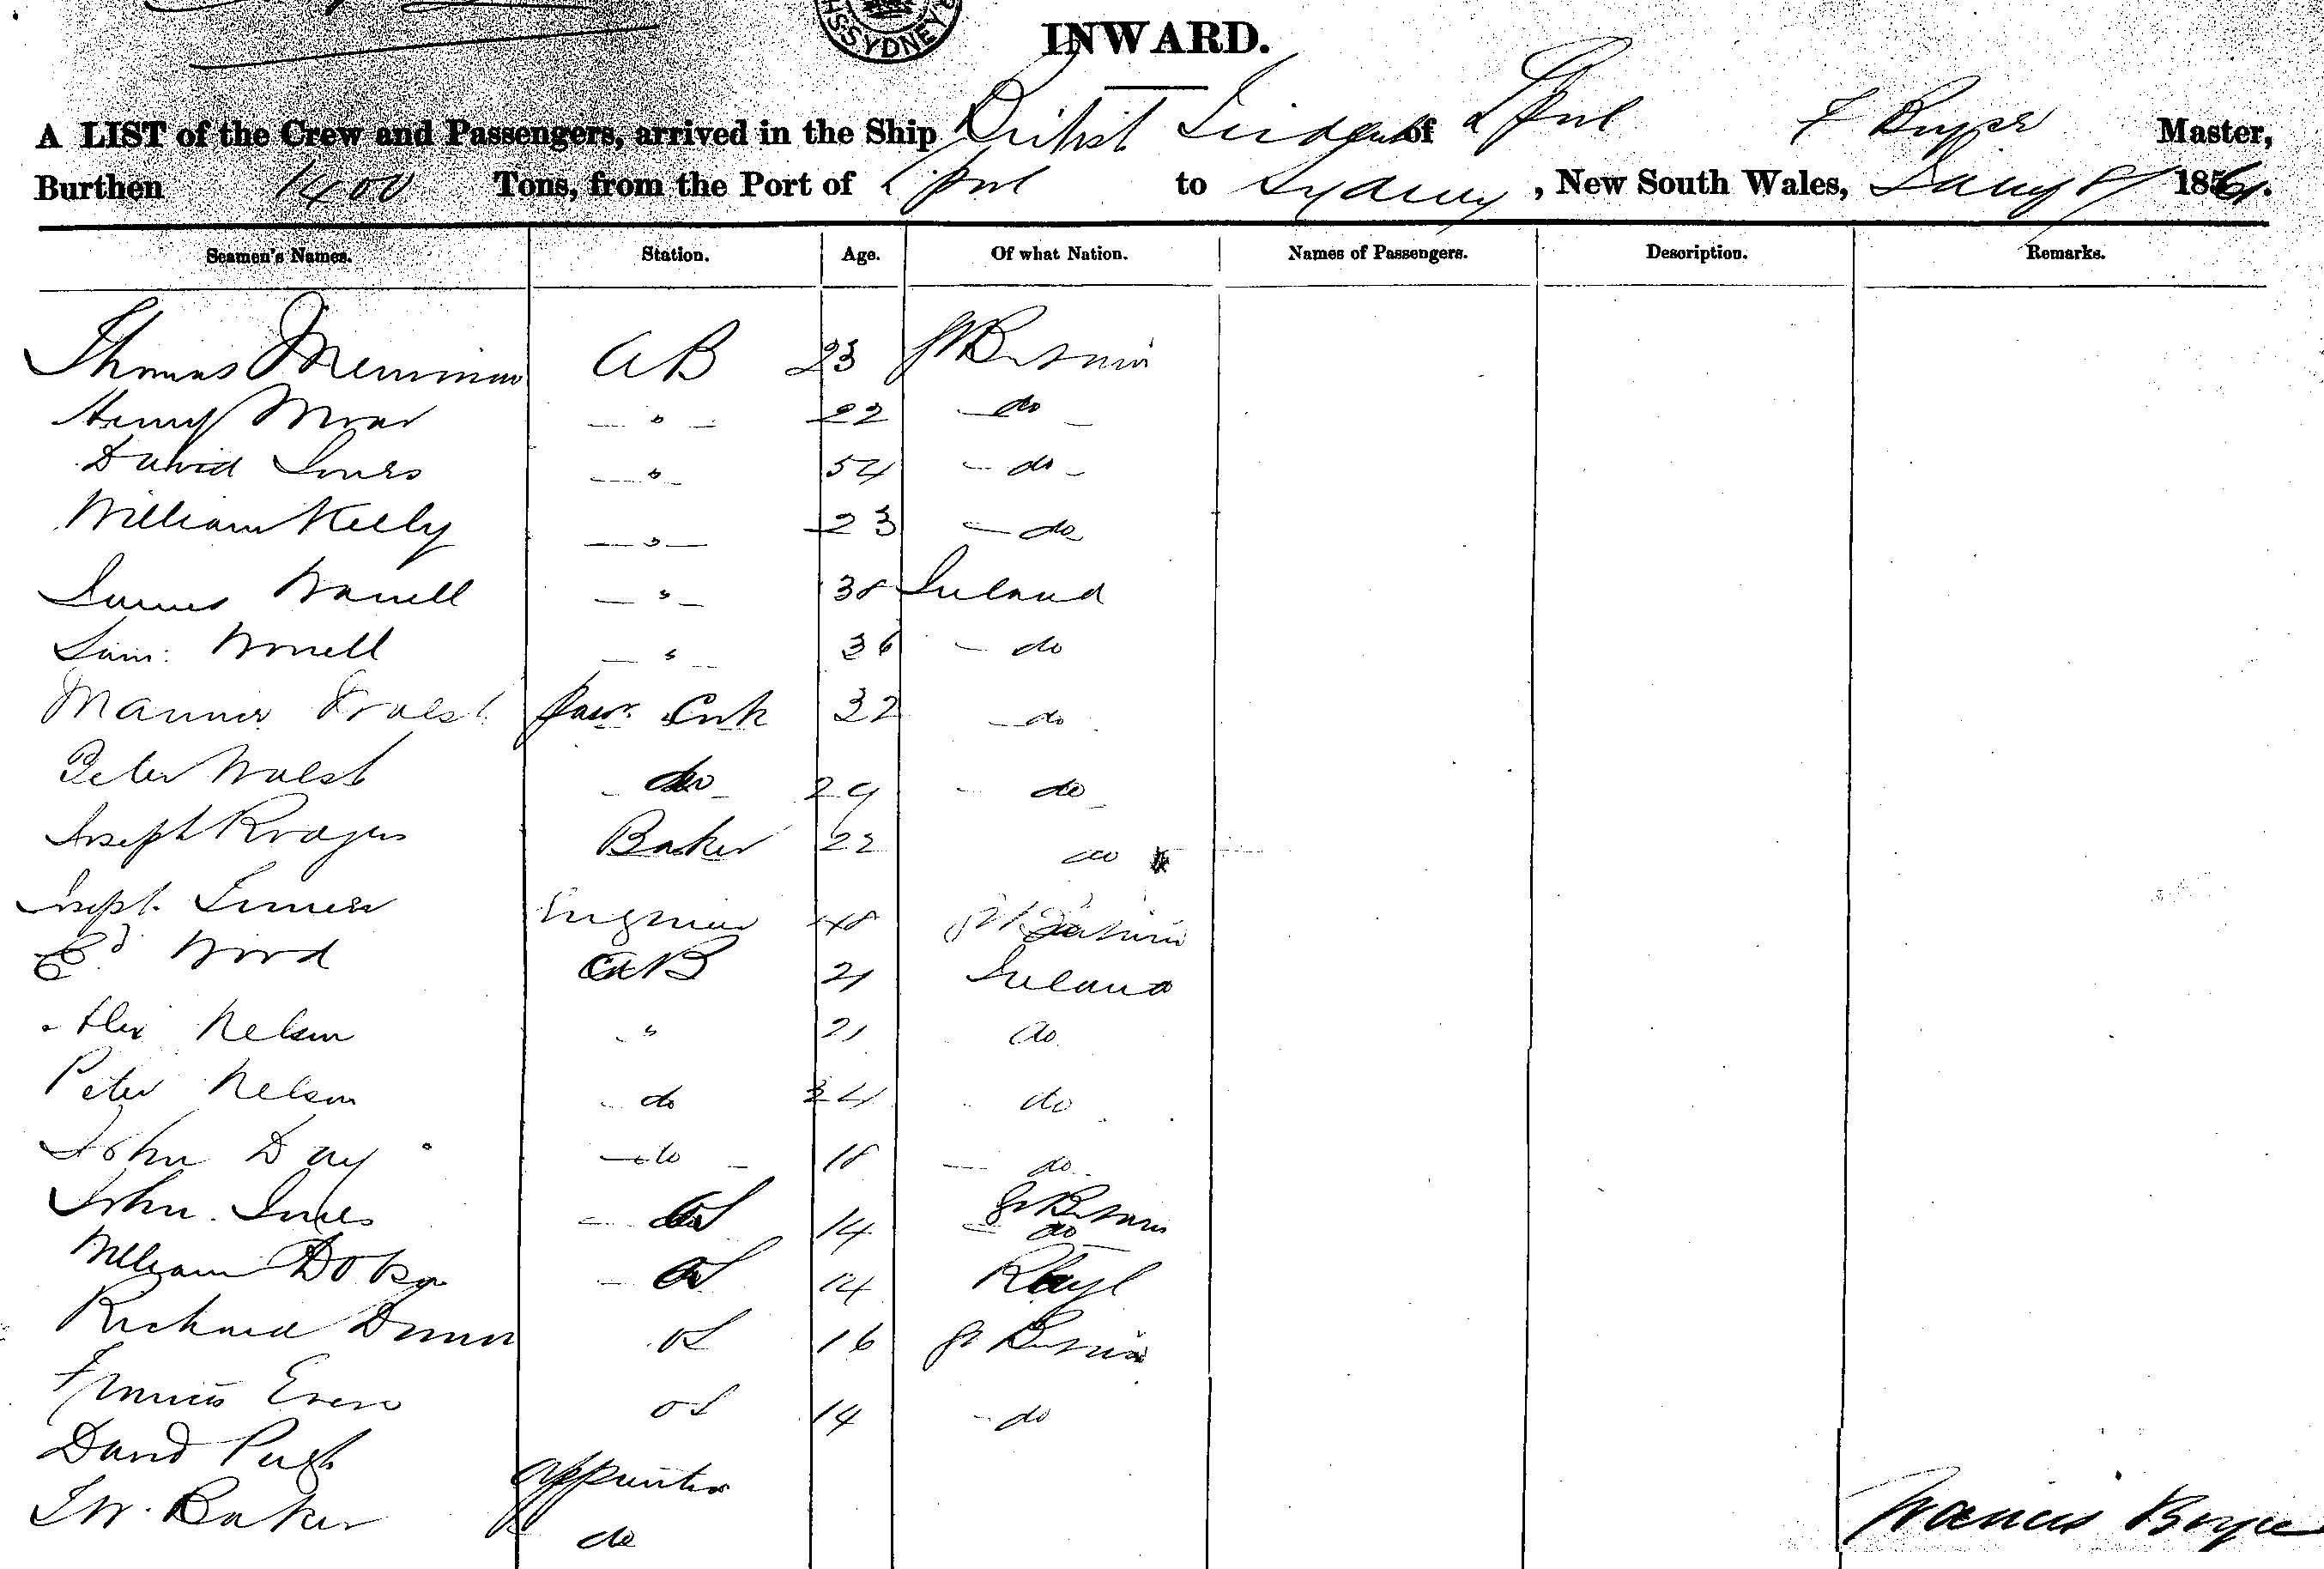 SYDNEY
INWARD.
A LIST of the Crew and Passengers, arrived in the Ship British Trident of Lpool F Boyce Master,
Burthen 1400 Tons, from the Port of Lpool to Sydney, New South Wales, 8 1861.
Seamen's Names. Station. Age. Of what Nation. Names of Passengers. Description. Remarks.
Thomas Merriman AB 23 Gt Britain
Henry 22 do
David Jones " 54 do
William Kelly " 23 do
James " 38 Ireland
Sam: " 36 do
Cook 32 do
Peter Walsh do 29 do
Joseph Rodgers Baker 22 do
Joseph Engineer 48 Gt Britain
Ed Wood AB 21 Ireland
Alex Nelson " 21 do
Peter Nelson do 34 do
John Day do 18 do
John Jones OS 14 Gt Britain
do
William OS 14 Rhyl
Richard OS 16 Gt Britain
Francis OS 14 do
David Pugh apprentice
J W. Baker do
Francis Boyce